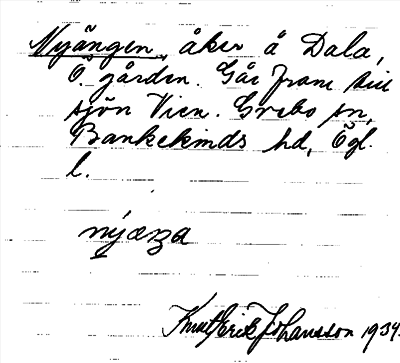 Nyängen, åker å Dala,
Ö. gården. Går fram till
sjön Vien. Grebo sn,
Bankekinds hd, Ögl.
l.
nýæŋa
Knut Erik Johansson 1934.